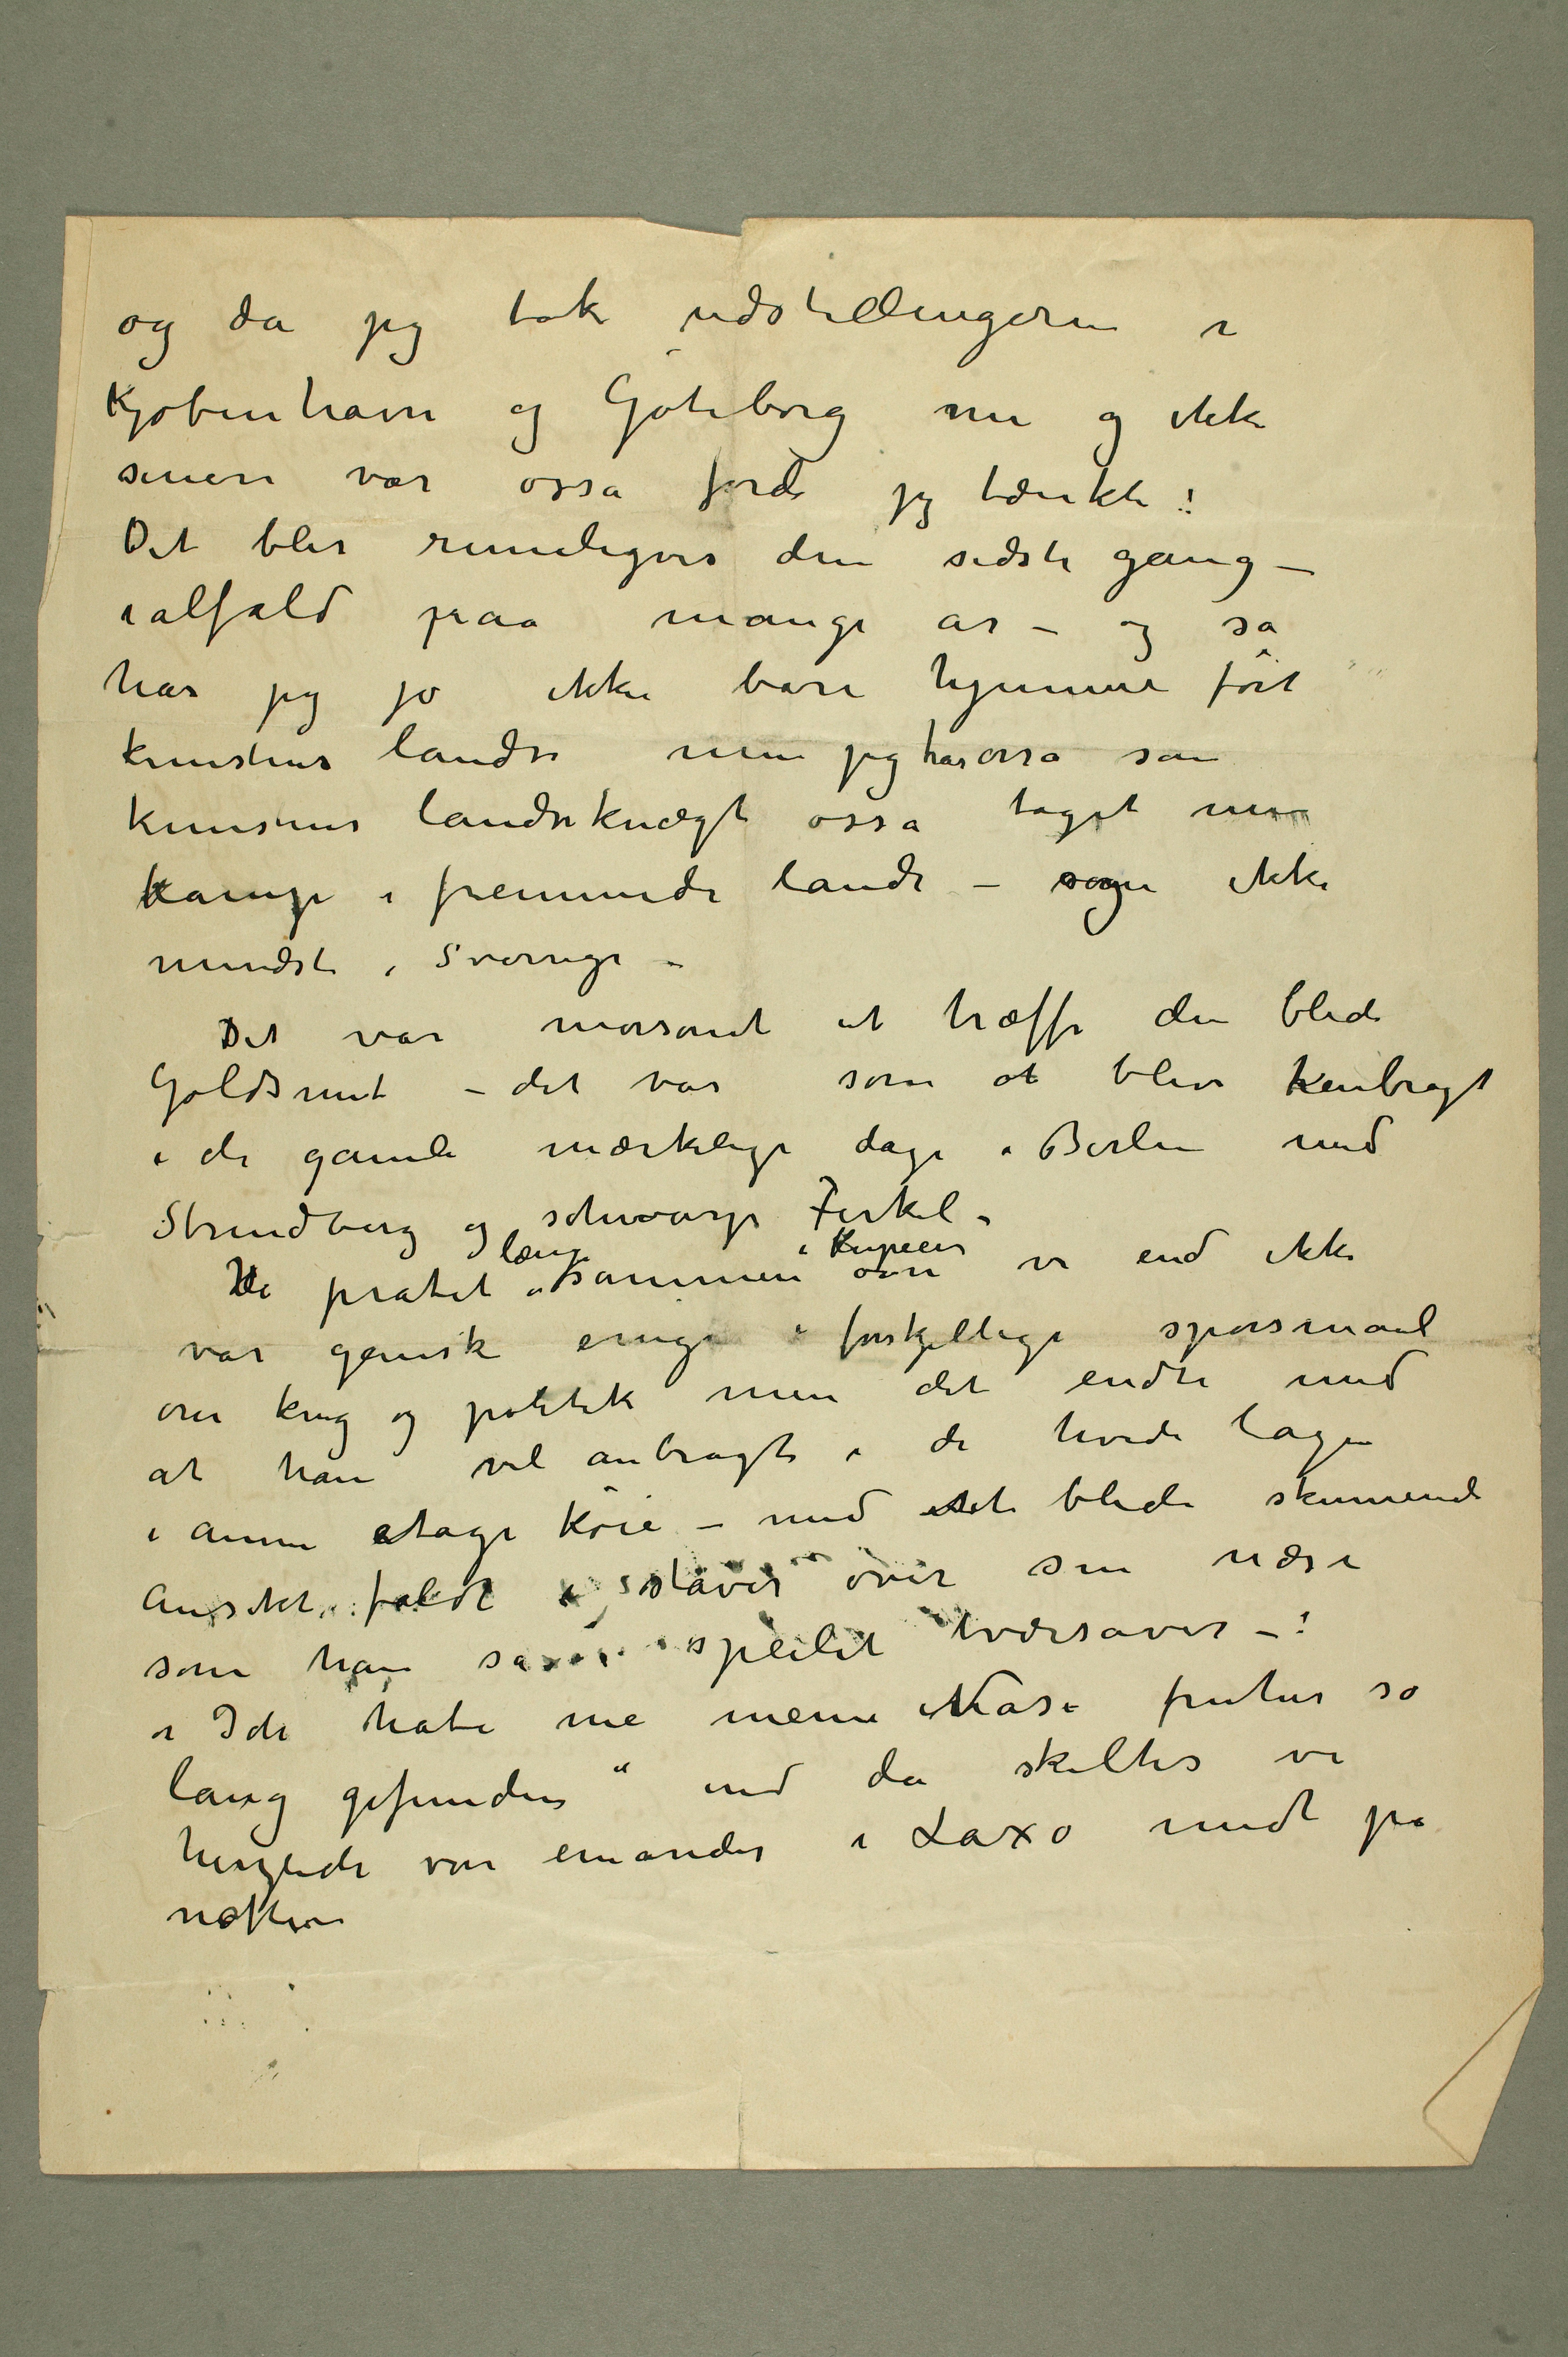 og da jeg tok udstillingerne i
Kjøbenhavn og Gøteborg nu og ikke
senere var osså fordi jeg tænkte:
Det blir rimeligvis den sidste gang –
ialfald paa mange år – og så
har jeg jo ikke bare hjemme ført
kunstens landse men jeg har osså som
kunstens landseknægt osså taget min
kamp i fremmede lande – ikke
mindst i Sverrige –
Det var morsomt at træffe den blide
Goldsmit – det var som at blive henbragt
i de gamle mærkelige dage i Berlin med
Strindberg og schwarze Ferkel –
Vi pratet længe sammen i Kupeen om vi end ikke
var ganske enige i forskjellige spørsmaal
om krig og politik men det endte med
at han vel anbragt i de hvide lagen
i anne etage køie – med det blide skinnende
Ansikt faldt i staver over sin næse
som han så i speilet tværsover –:
„Ich habe me meine Nase früher so
lang gefunden“ med da skiltes vi
henglidt von einander i Laxo midt på
natten